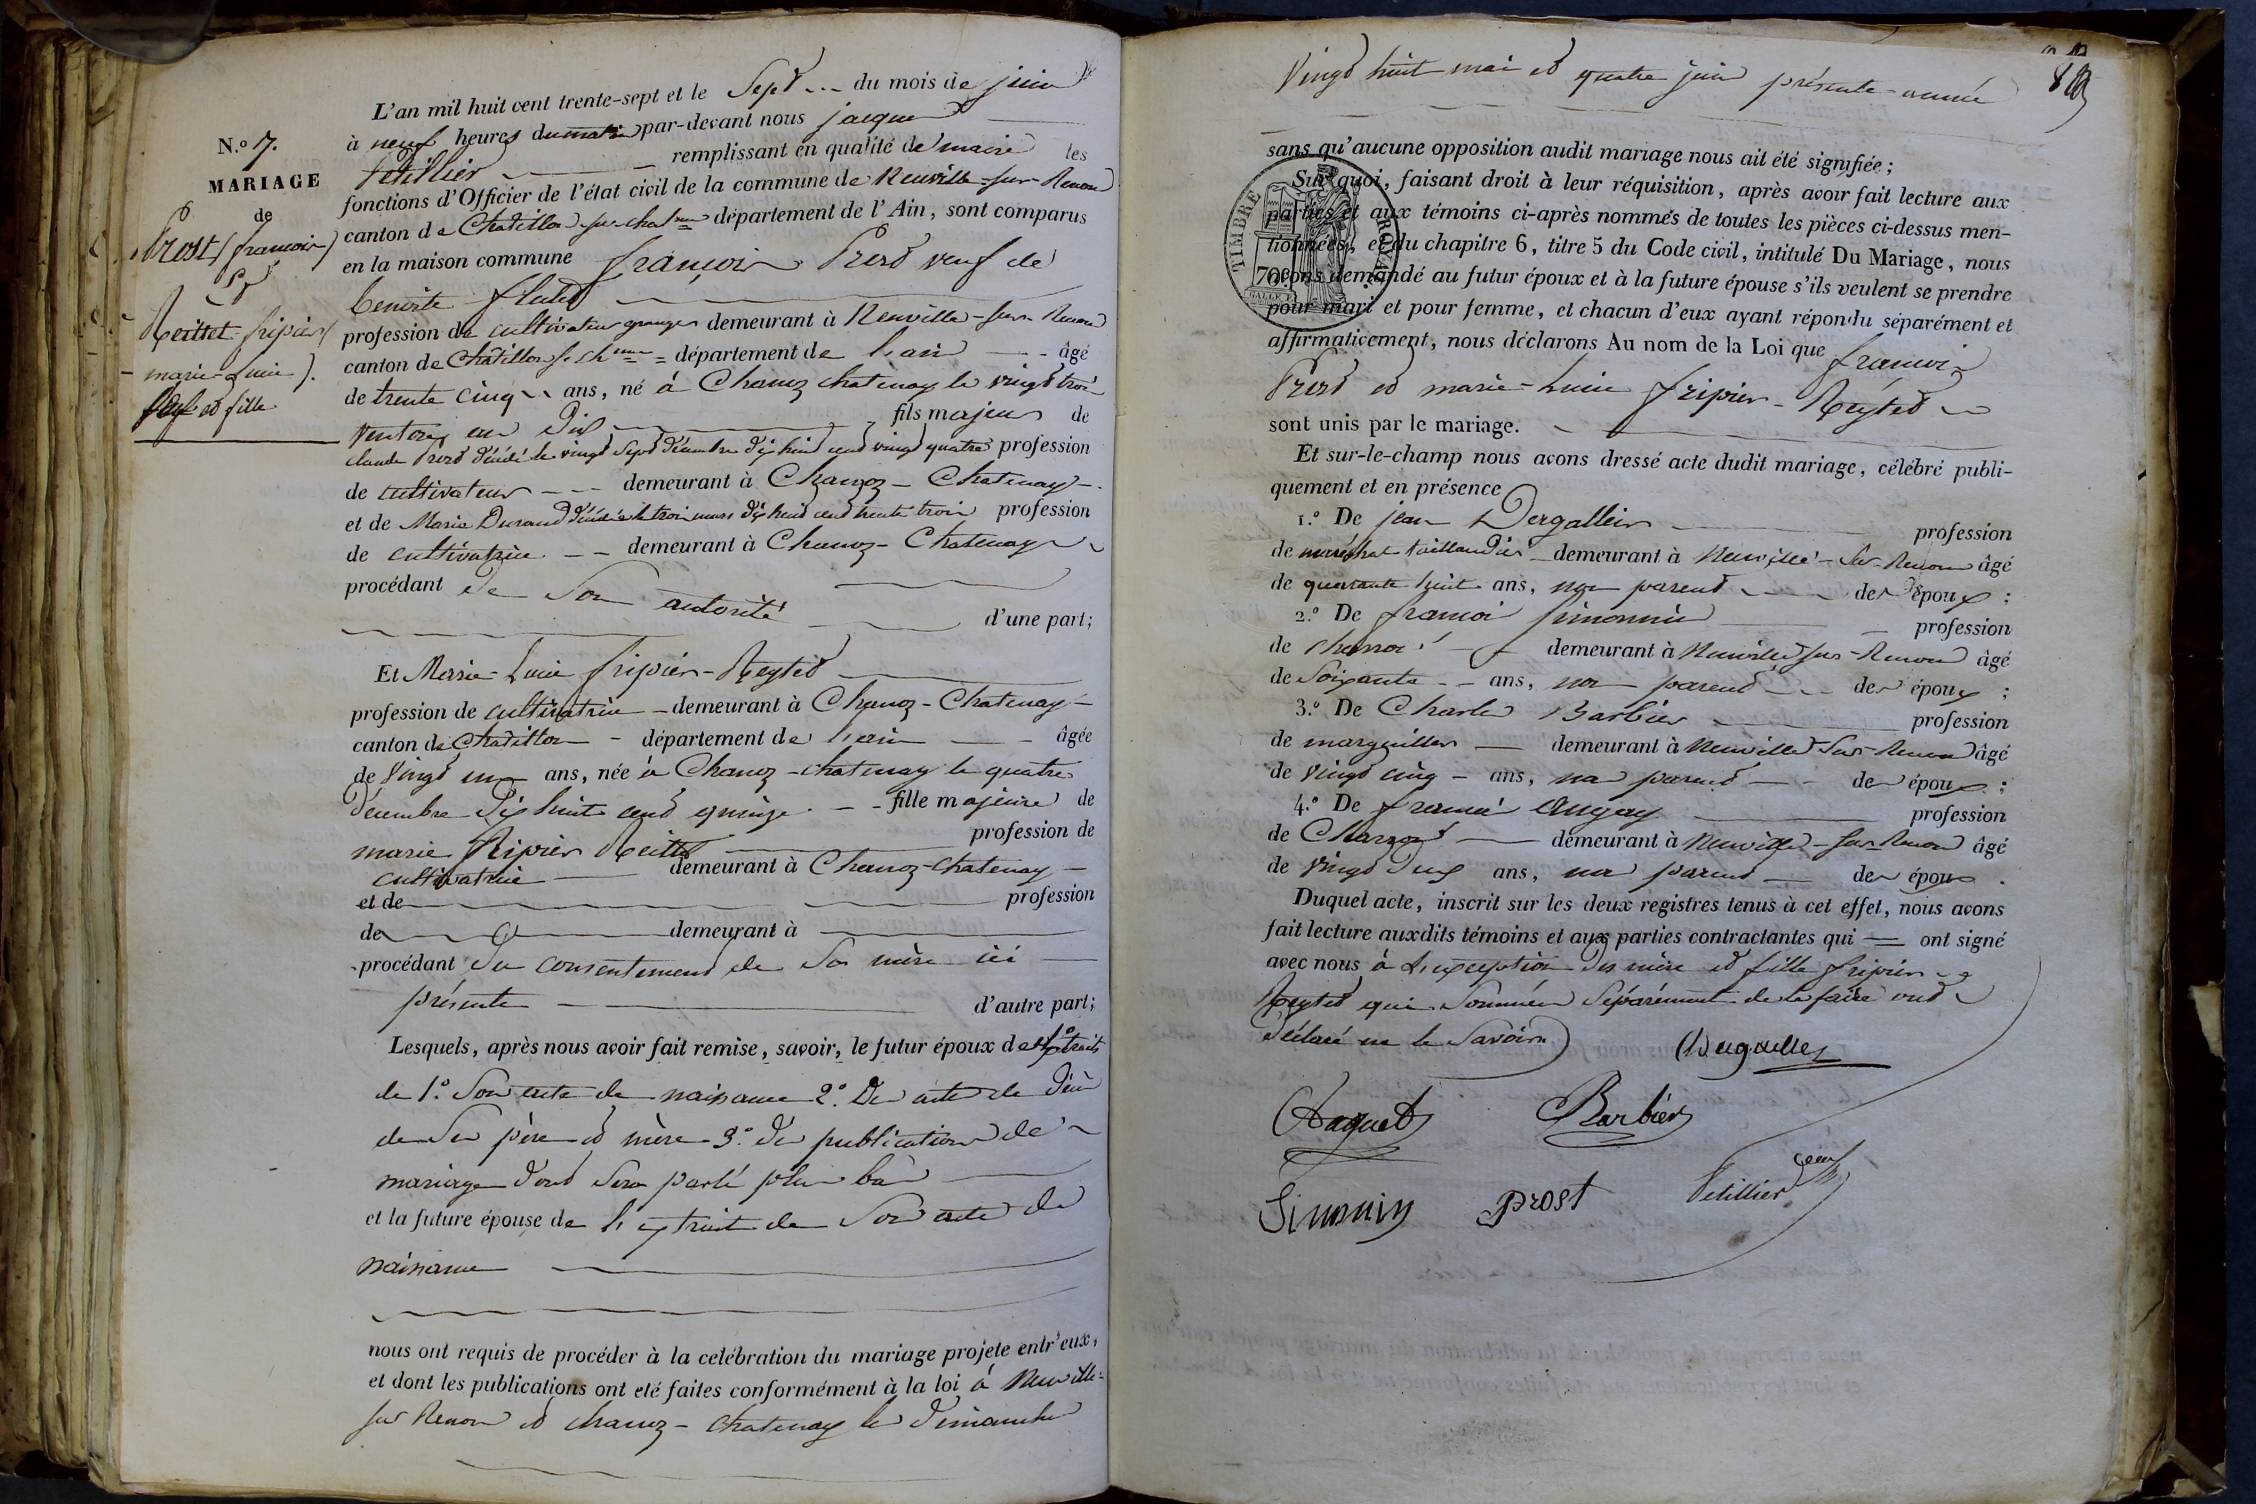 N.° 7.
MARIAGE
de
Prost (françois)
et
Reittet fripier
marie-Lucie).
veuf et fille
L'an mil huit cent trente-sept et le Sept du mois de juin
à neuf heures du matin par-devant nous jacques
Petillier remplissant en qualité de maire les
fonctions d'Officier de l'état civil de la commune de Neuville-sur-Renon
canton de Chatillon sur chal.nne département de l'Ain, sont comparus
en la maison commune françois Prost veuf de
benoite
profession de cultivateur granger demeurant à Neuville-sur-Renon
canton de Châtillon s. ch.nne département de l'ain âgé
de trente cinq ans, né à Chanoz chatenay le vingt trois
ventose an Dix fils majeur de
claude Prost décédé le vingt Sept décembre dix huit cent vingt quatre profession
de cultivateur demeurant à Chanoz-Chatenay
et de Marie Durand décédée le trois mars dix huit cent trente trois profession
de cultivatrice demeurant à Chanoz-Chatenay
procédant de Son autorité
d'une part;
Et Marie-Lucie fripier-Reytet
profession de cultivatrice demeurant à Chanoz-Chatenay
canton de Chatillon département de l'ain âgée
de vingt un ans, née à Chanoz-chatenay le quatre
décembre dix huit cent quinze fille majeure de
marie fripier Reittet profession de
cultivatrice demeurant à Chanoz-chatenay
et de profession
de demeurant à
procédant du consentement de Sa mère ici
présente d'autre part;
Lesquels, après nous avoir fait remise, savoir, le futur époux des extraits
de 1.° Son acte de naissance 2.° Des actes de décès
de Ses père et mère 3.° des publications de
mariage dont Sera parlé plus bas
et la future épouse de l'extrait de Son acte de
naissance
nous ont requis de procéder à la celébration du mariage projete entr'eux,
et dont les publications ont eté faites conformément à la loi à Neuville-
sur Renon et chanoz-chatenay les Dimanches
Vingt huit mai et quatre juin présente année
sans qu'aucune opposition audit mariage nous ait été signifiée;
Sur quoi, faisant droit à leur réquisition, après avoir fait lecture aux
parties et aux témoins ci-après nommés de toutes les pièces ci-dessus men-
tionnées, et du chapitre 6, titre 5 du Code civil, intitulé Du Mariage, nous
avons demandé au futur époux et à la future épouse s'ils veulent se prendre
pour mari et pour femme, et chacun d'eux ayant répondu séparément et
affirmativement, nous déclarons Au nom de la Loi que françois
Prost et marie-Lucie fripier-Reytet
sont unis par le mariage.
TIMBRE ROYAL
70
Et sur-le-champ nous avons dressé acte dudit mariage, célébré publi-
quement et en présence
1.° De jean Dergallein profession
de maréchal taillandier demeurant à Neuville-Sur-Renon âgé
de quarante huit ans, non parent des époux;
2.° De françois Simonnin profession
de demeurant à Neuville sur-Renon âgé
de Soixante ans, non parent des époux;
3.° De Charles Barbier profession
de marguiller demeurant à Neuville Sur-Renon âgé
de vingt cinq ans, non parent des époux;
4.° De profession
de demeurant à Neuville-sur-Renon âgé
de vingt deux ans, non parent des époux.
Duquel acte, inscrit sur les deux registres tenus à cet effet, nous avons
fait lecture auxdits témoins et aux parties contractantes qui ont signé
avec nous à l'exception des mère et fille fripier
Reytet qui Sommées Séparément de le faire ont
déclaré ne le Savoir.
Barbier
Simonin prost Petillier